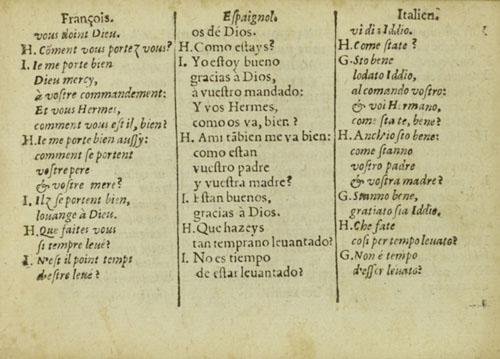 François.
vous doint Dieu.
H. Cõment vous portez vous?
I. Ie me porte bien
Dieu mercy,
à vostre commandement:
Et vous Hermes,
comment vous est il, bien?
H. Ie me porte bien aussy:
comment se portent
vostre pere
& vostre mere?
I. Ilz se portent bien,
louange à Dieu.
H. Que faites vous
si tempre leué?
I. N'est il point temps
d'estre leué?
Espaignol.
os dé Dios.
H. Como estays?
I. Yo estoy bueno
gracias à Dios,
à vuestro mandado:
Y vos Hermes,
como os va, bien?
H. Ami tãbien me va bien:
como estan
vuestro padre
y vuestra madre?
I. Estan buenos,
gracias à Dios.
H. Que hazeys
tan temprano leuantado?
I. No es tiempo
de estar leuantado?
Italien.
vi di: Iddio.
H. Come state?
G. Sto bene
lodato Iddio,
al comando vostro:
& voi Hermano,
come state, bene?
H. Anchio sto bene:
come stanno
vostro padre
& vostra madre?
G. Stanno bene,
gratiato sia Iddio.
H. Che fate
cosi per tempo leuato?
G. Non è tempo
d'esser leuato?